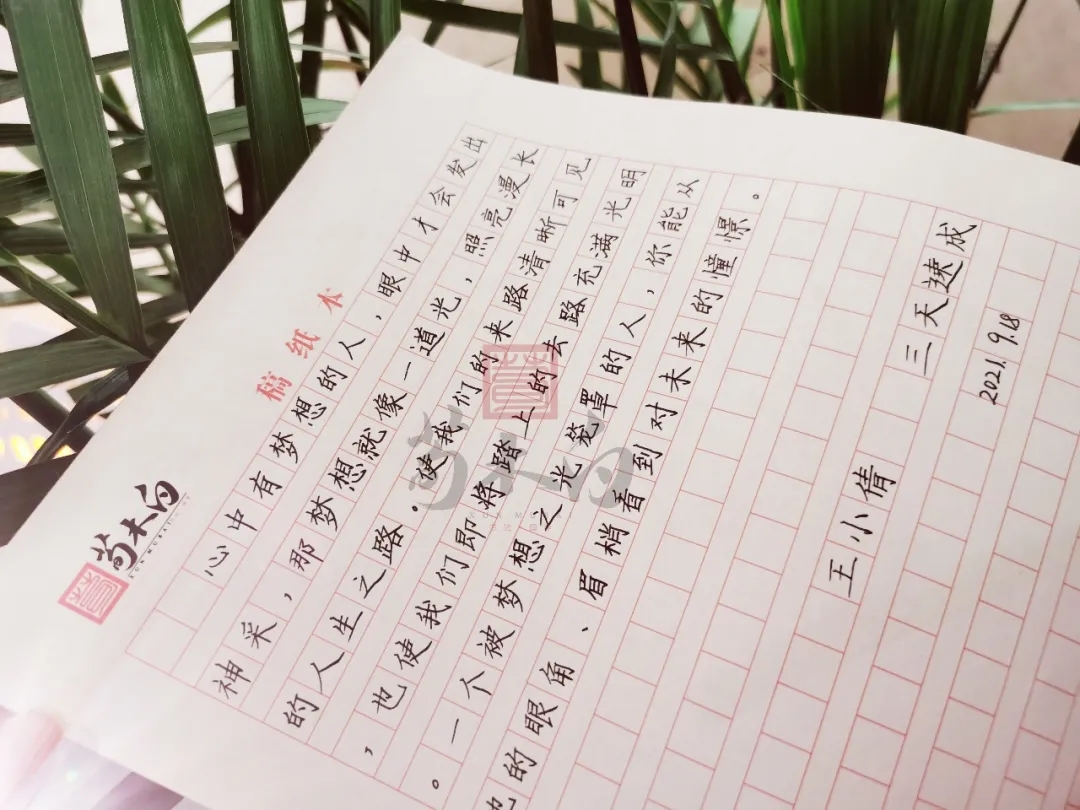 荀木白
稿纸本
心中有梦想的人,眼中才会发出
神采,那梦想就像一道光,照亮漫长
的人生之路。使我们的来路清晰可见
,也使我们即将踏上的去路充满光明
。一个被梦想之光笼罩的人,你能从
他的眼角、眉梢看到对未来的憧憬。
三天速成
王小倩
2021.9.18
荀木白